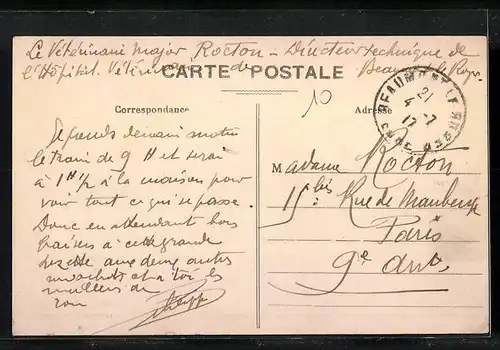 Le Vétérinaire Major Rocton - Directeur technique de
l'Hôpital Vétérinaire de Beaumont le Roger
CARTE POSTALE
10
Correspondance
Adresse
BEAUMONT-LE-ROGER
21
4 -7
17
EURE
Je prends demain matin
le train de 9 H et serai
à 1 H 1/2 à la maison pour
voir tout ce qui se passe.
Donc en attendant bons
baisers à cette grande
aux deux autres
et à toi les
meilleurs de
ton
Philippe
Madame Rocton
15 bis Rue de Maubeuge
Paris
9e arrt